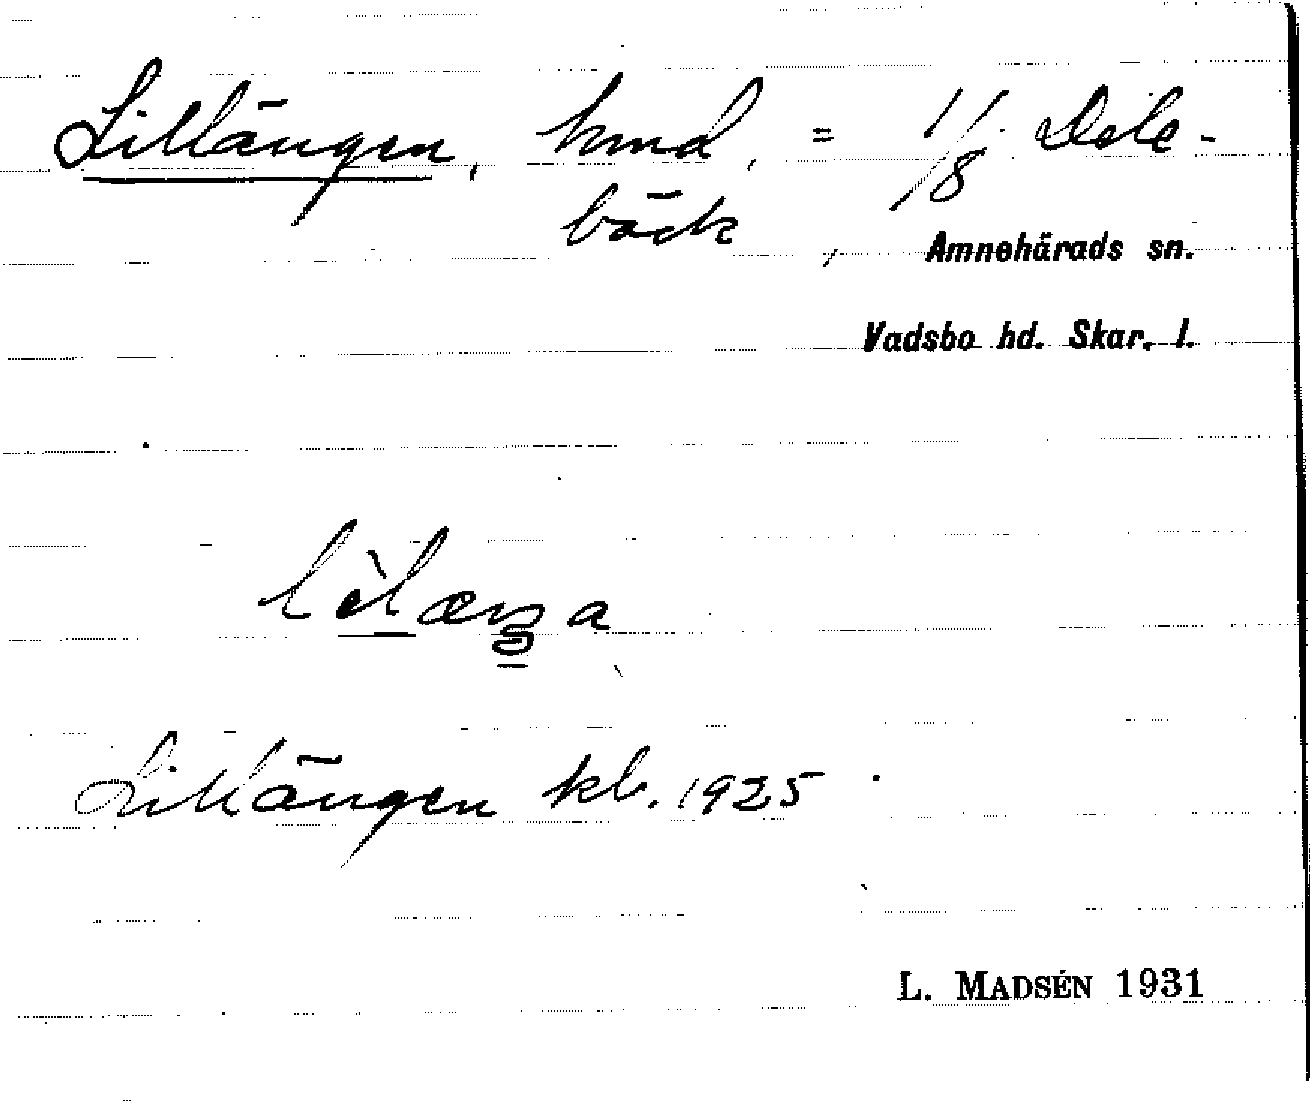 Lillängen, hmd, = 1/8 Dele-
bäck
Amnehärads sn.
Vadsbo hd. Skar. l.
Lillängen kb. 1925
L. MADSÉN 1931